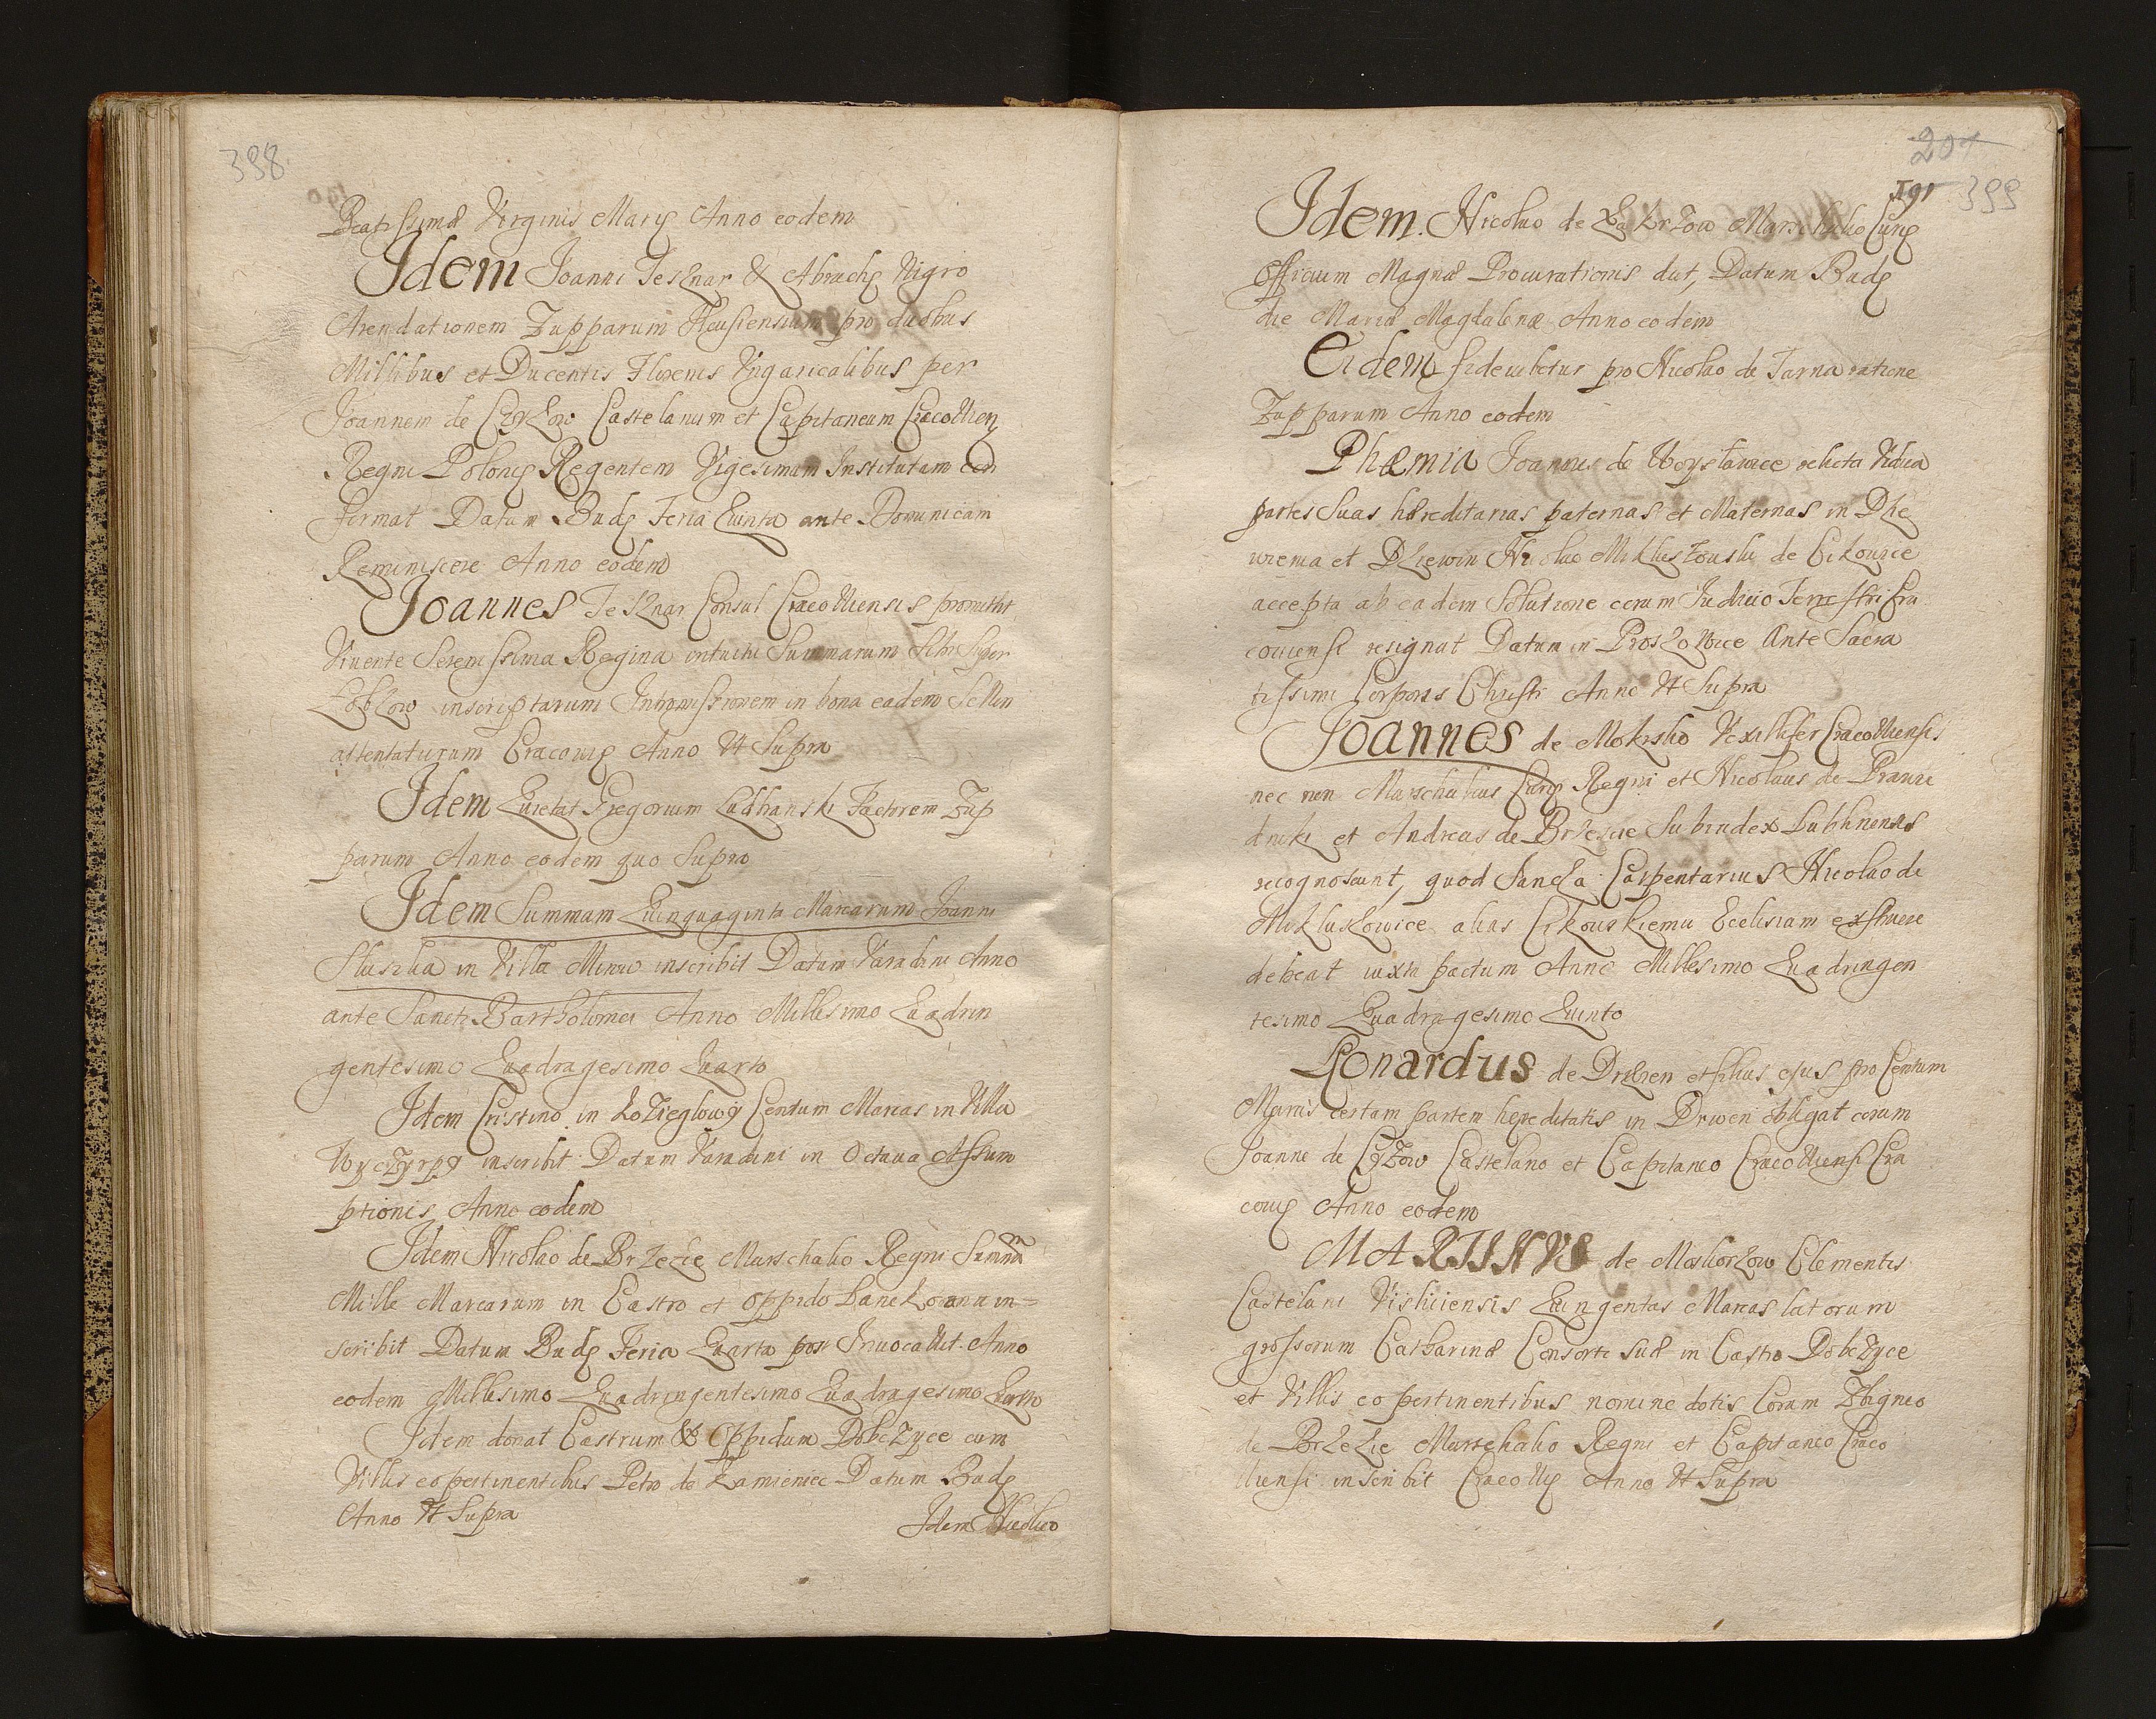 398
Beatissimæ Virginis Marię Anno eodem
Idem Joanni Tesznar & Abrachę Nigro
Arendationem Zupparum Reusiensium pro duobus
Millibus et Ducentis Florenis Vngaricalibus per
Joannem de Czyzow Castelanum et Capitaneum Cracovien
Regni Polonię Regentem Vigesimam Institutam con
firmat Datum Budę Feria Quinta ante Dominicam
Reminiscere Anno eodem
Joannes Tesznar Consul Cracoviensis promittit
Viuente Serenissima Regina intuitu Summarum
inscriptarum Intromissionem in bona eadem
attentaturum Cracouię Anno Vt Supra
Idem Quietat Gregorium Ludbranski Factorem Zup
parum Anno eodem quo Supra
Idem Summam Quinquaginta Marcarum Joanni
Sluszka in Villa inscribit Datum Varadini Anno
ante Sancti Bartholomei Anno Millesimo Quadrin
gentesimo Quadragesimo Quarto
Idem Cristino in Kozieglowy Centum Marcas in Villa
inscribit Datum Varadini in Octaua Assum
ptionis Anno eodem
Idem Nicolao de Brzezie Marschalco Regni Summam
Mille Marcarum in Castro et Oppido Lanckorona in=
scribit Datum Budę Feria Quarta post Inuocavit Anno
eodem Millesimo Quadringentesimo Quadragesimo Quarto
Idem donat Castrum & Oppidum Dobczyce cum
Villis eo pertinentibus Petro de Kamieniec Datum Budę
Anno Vt Supra
Idem Nicolao
207
191 399
Idem Nicolao de Zakrzow Marschalco Curię
Officium Magnæ Procurationis dat, Datum Budę
die Mariæ Magdalenæ Anno eodem
Eidem fideiubetur pro Nicolao de Tarnawa ratione
Zupparum Anno eodem
Phæmia Joannis de Woyslawice relicta Vidua
partes Suas hæreditarias paternas et Maternas in
et Drewin Nicolao de Cikowice
accepta ab eadem Solutione coram Judicio Terrestri Cra
couiensi resignat Datum in Proszowice Ante Sacra
tissimi Corporis Christi Anno Vt Supra
Joannes de Mokrsko Vexillifer Cracoviensis
nec non Marschalcus Curię Regni et Nicolaus de Prawie
dniki et Andreas de Brzezie Subiudex Lublinensis
recognoscunt, quod Sancza Carpentarius Nicolao de
Mikluszowice alias Cikowskiemu Ecclesiam exstruere
debeat iuxta pactum Anno Millesimo Quadringen
tesimo Quadragesimo Quinto
Leonardus de Drwen et filius ejus pro Centum
Marcis certam partem hereditatis in Drwen obligat coram
Joanne de Czyzow Castelano et Capitaneo Cracoviensi Cra
couię Anno eodem
MARTINVS de Moskorzow Clementis
Castelani Visliciensis Quingentas Marcas latorum
grossorum Catharinæ Consorti Suæ in Castro Dobczyce
et Villis eo pertinentibus nomine dotis Coram Zbigneo
de Brzezie Marschalco Regni et Capitaneo Craco
viensi inscribit Cracovię Anno Vt Supra